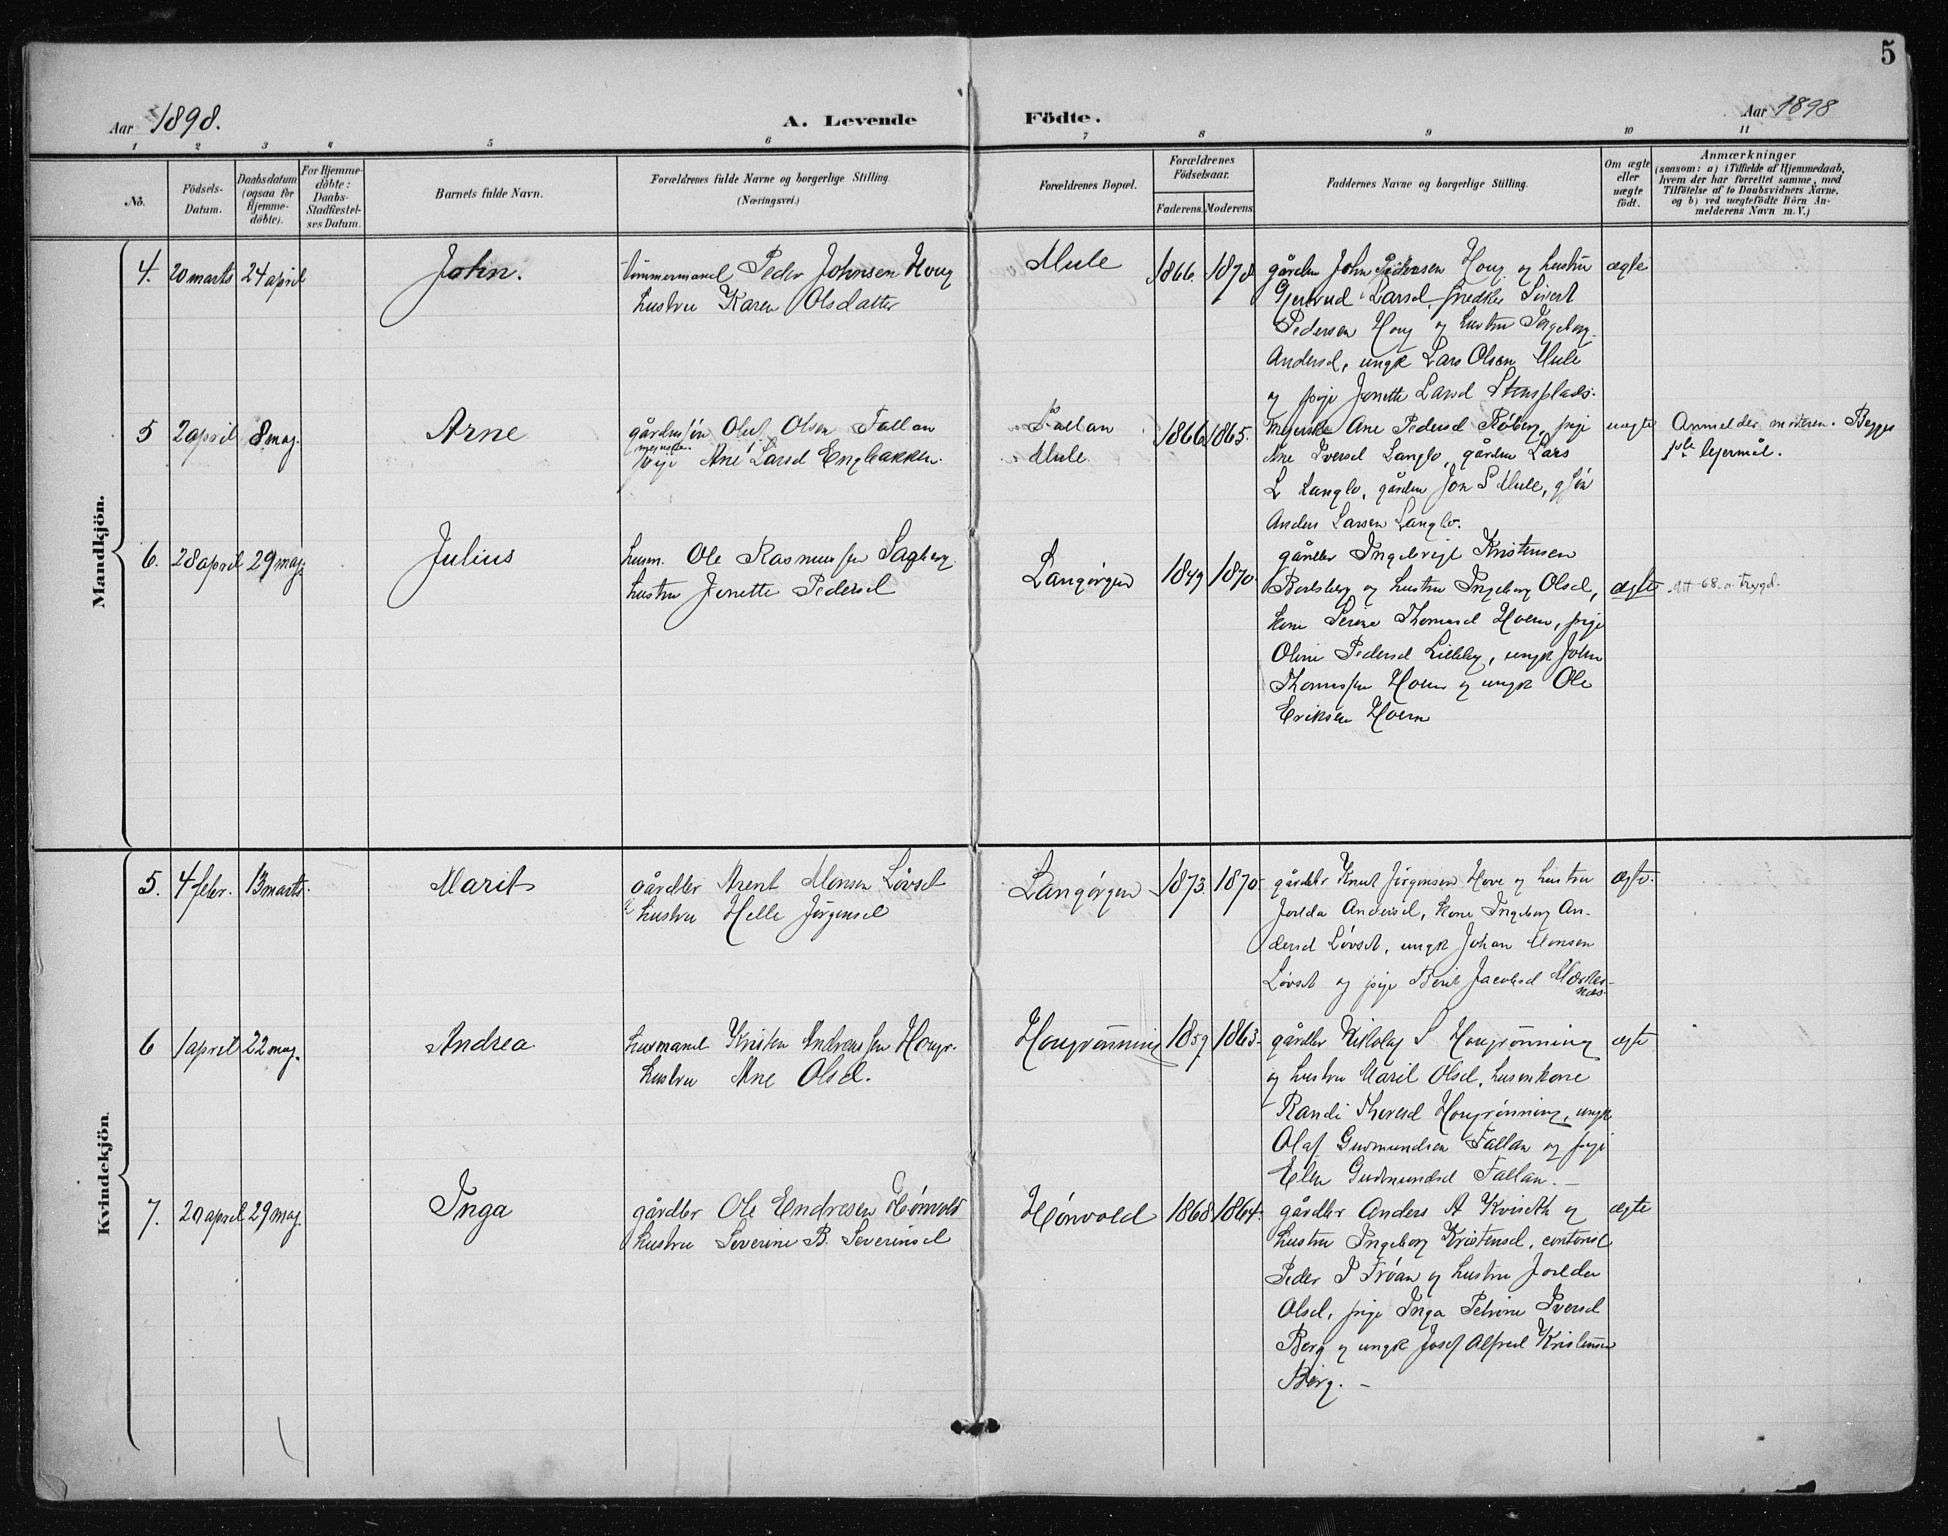 5
Aar 1898. A. Levende Födte. Aar 1898
1 2 3 4 5 6 7 8 9 10 11
No.
Födsels-
Datum.
Daabsdatum
(ogsaa for
Hjemme-
döbte).
For Hjemme-
döbte:
Daabs-
Stadfæstel-
ses Datum.
Barnets fulde Navn.
Forældrenes fulde Navne og borgerlige Stilling
(Næringsvei.)
Forældrenes Bopæl.
Forældrenes
Födselsaar.
Faderens. Moderens.
Faddernes Navne og borgerlige Stilling.
Om ægte
eller
uægte
födt.
Anmærkninger
(saasom: a) i Tilfælde af Hjemmedaab,
hvem der har forrettet samme, med
Tilföielse af to Daabsvidners Navne,
og b) ved uægtefödte Börn An-
melderens Navn m. V.)
Mandkjön.
4. 20 marts 24 april John. tømmermand Peder Johnsen Houg Mule 1866. 1878 gårdm John Pedersen Houg og hustru ægte
hustru Karen Olsdatter
Gjertrud Larsd, snedker Sivert
Pedersen Houg og hustru Ingeborg
Andersd, ungk Lars Olsen Mule
og pige Jonette Larsd Stensplads.
5 2 april 8 maj. Arne gårdmssøn Oluf Olsen Fallan Fallan 1866 1865. Ane Pedersd pige uægte Anmelder moderen. Begges
pige Ane Larsd Engbakken. Mule
1ste lejermål.
Ane Iversd Langlo, gårdm Lars
L Langlo, gårdm Jon S Mule, gsøn
Anders Larsen Langlo.
6. 28 april 29 maj. Julius husm. Ole Rasmussen Sagberg Langørgen 1849 1870. gårdbr Kristensen
hustru Jonette Pedersd
og hustru Ingeborg Olsd, ægte Att 68. n. trygd.
kone Serine Thomasd Hoem, pige
Oline Pedersd Lilleby, ungk John
Thomassen Hoem og ungk Ole
Eriksen Hoem
Kvindekjön.
5. 4 febr. 13 marts. Marit gårdbr Arent Monsen Løvset Langørgen 1873 1870 gårdbr Knut Jørgensen Hove og hustru ægte.
hustru Helle Jørgensd
Andersd, kone Ingeborg An-
dersd Løvset, ungk Johan Monsen
Løvset og pige Berit Jacobsd
6 1 april 22 maj. Andrea husmand Kristen Andreassen Hougr. Hougrønning 1859 1863. gårdbr Nikolaj S Hougrønning ægte
hustru Ane Olsd.
og hustru Marit Olsd, husmkone
Randi Hougrønning, ungk
Olaf Gudmundsen Fallan og pige
Elen Gudmundsd Fallan.
7. 20 april 29 maj. Inga gårdbr Ole Endresen Hønvold Hønvold 1868 1864. gårdbr Anders A Kvisetk og ægte
hustru Severine B. Severinsd
hustru Ingeborg Kristensd,
Peder P Frøan og hustru
Olsd, pige Inga Petrine Iversd
Berg og ungk Josef Alfred Kristensen
Berg.